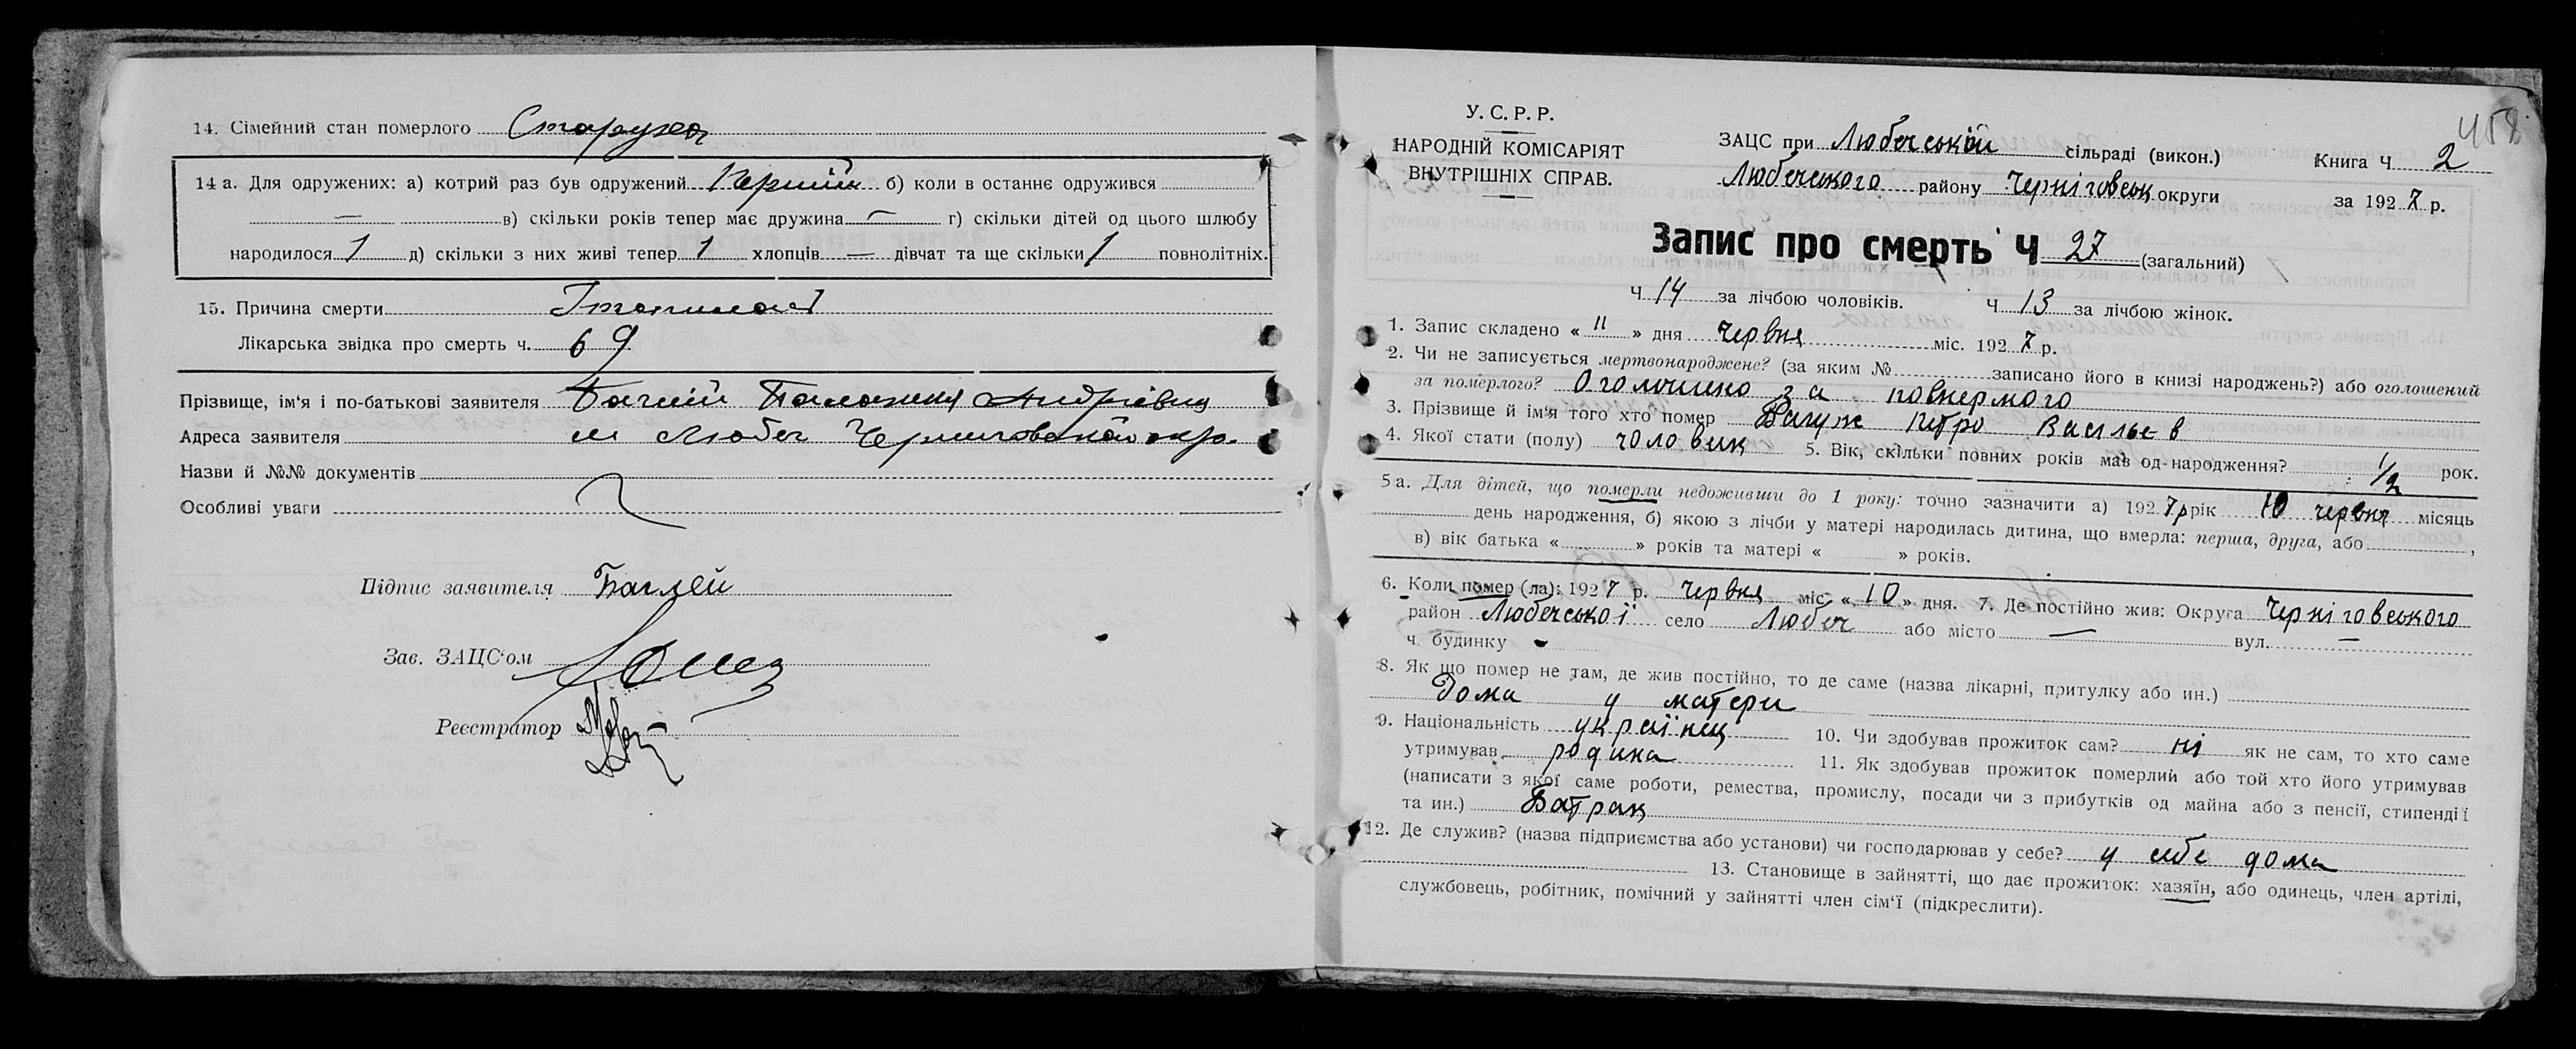 14. Сімейний стан померлого Старуха
14 а. Для одружених: а) котрий раз був одружений Перший б) коли в останнє одружився
— в) скільки років тепер має дружина — г) скільки дітей од цього шлюбу
народилося 1 д) скільки з них живі тепер 1 хлопців — дівчат та ще скільки 1 повнолітніх.
15. Причина смерти
Лікарська звідка про смерть ч. 69
Прізвище, ім'я і по-батькові заявителя Андрієвна
Адреса заявителя м Любеч
Назви й №№ документів
Особливі уваги
Підпис заявителя Баглей
Зав. ЗАЦС'ом
Реєстратор
458
У. С. Р. Р.
НАРОДНІЙ КОМІСАРІЯТ
ВНУТРІШНІХ СПРАВ.
ЗАЦС при Любечській сільраді (викон.)
Любечського району Черніговськ округи
Книга Ч 2
за 1927 р.
Запис про смерть Ч 27 (загальний)
Ч 14 за лічбою чоловіків. Ч 13 за лічбою жінок.
1. Запис складено « 11 » дня червня міс. 1927 р.
2. Чи не записується мертвонароджене? (за яким № записано його в книзі народжень?) або оголошений
за померлого? Оголошено за
3. Прізвище й ім'я того хто помер Петро Васільєв
4. Якої стати (полу) чоловик 5. Вік, скільки повних років мав од-народження? 1/2 рок.
5 а. Для дітей, що померли недоживши до 1 року: точно зазначити а) 1927р рік 10 червня місяць
день народження, б) якою з лічби у матері народилась дитина, що вмерла: перша, друга, або ,
в) вік батька « » років та матері « » років.
6. Коли помер (ла): 1927 р. червня міс. «10» дня. 7. Де постійно жив: Округа Чернiговського
район Любечської село Любеч або місто — вул. —
ч. будинку
8. Як що помер не там, де жив постійно, то де саме (назва лікарні, притулку або ин.)
Дома у матери
9. Національність українец 10. Чи здобував прожиток сам? ні як не сам, то хто саме
утримував родина 11. Як здобував прожиток померлий або той хто його утримував
(написати з якої саме роботи, ремества, промислу, посади чи з прибутків од майна або з пенсії, стипендії
та ин.) Батрак
12. Де служив? (назва підприємства або установи) чи господарював у себе? у себе дома
13. Становище в зайнятті, що дає прожиток: хазяїн, або одинець, член артілі,
службовець, робітник, помічний у зайнятті член сім'ї (підкреслити).